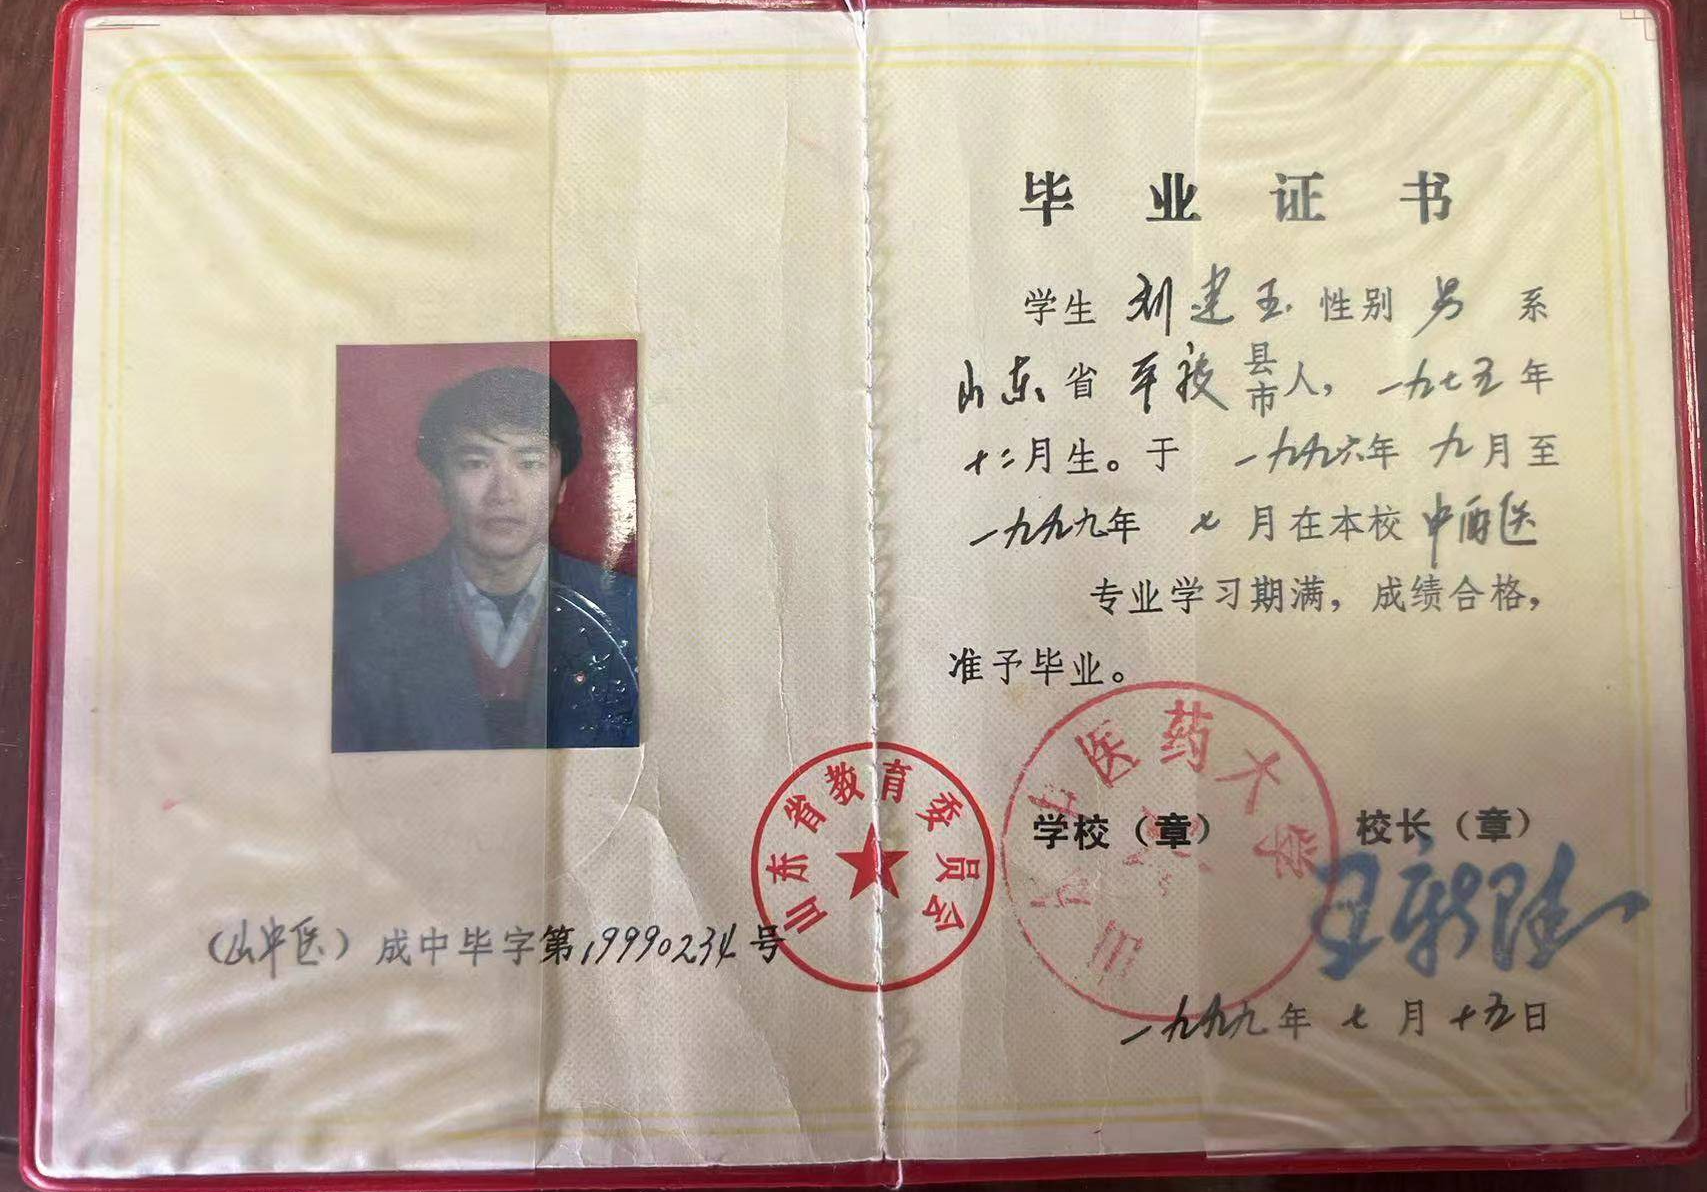 （山中医）成中毕字第19990234号
山东省教育委员会
毕业证书
学生 刘建玉 性别 男 系
山东省 平 县市人，一九七五年
十二月生。于 一九九六年 九月至
一九九九年 七 月在本校 中西医
专业学习期满，成绩合格，
准予毕业。
医药大学
学校（章） 校长（章）
一九九九年 七 月 十五日